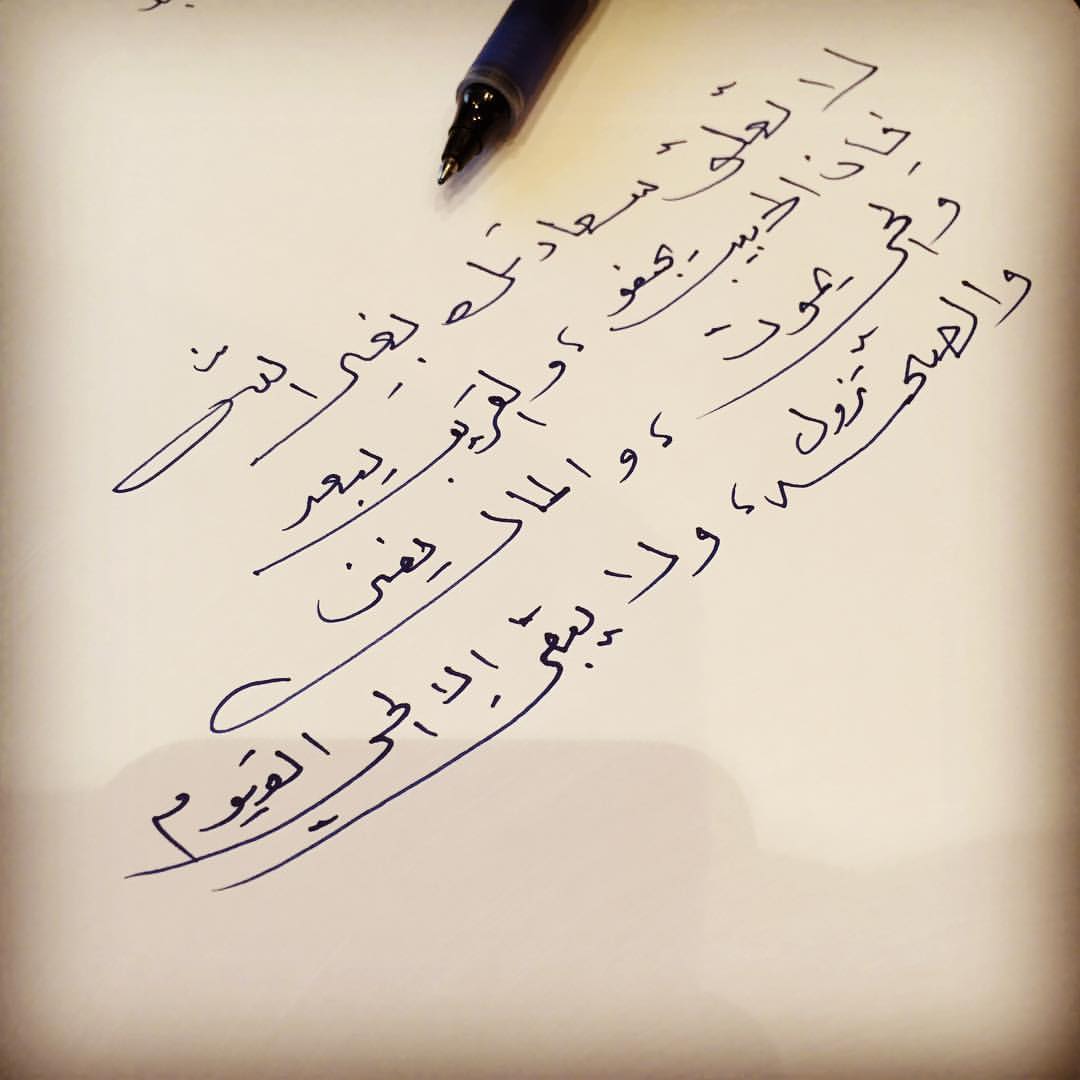 لا تعلق سعادتك بغير الله
فإن الحبيب يجفو، والقريب يبعد
والحي يموت، والمال يفنى
والصحة تزول، ولا يبقى إلا الحي القيوم